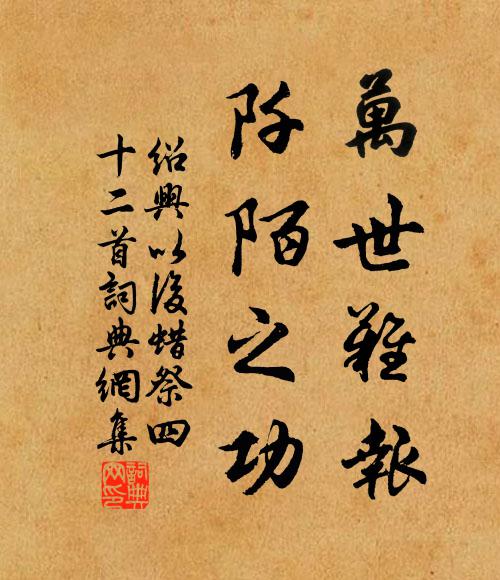 萬世難報
阡陌之功
紹興以後蜡祭四
十二首詞典網集
詞典網印